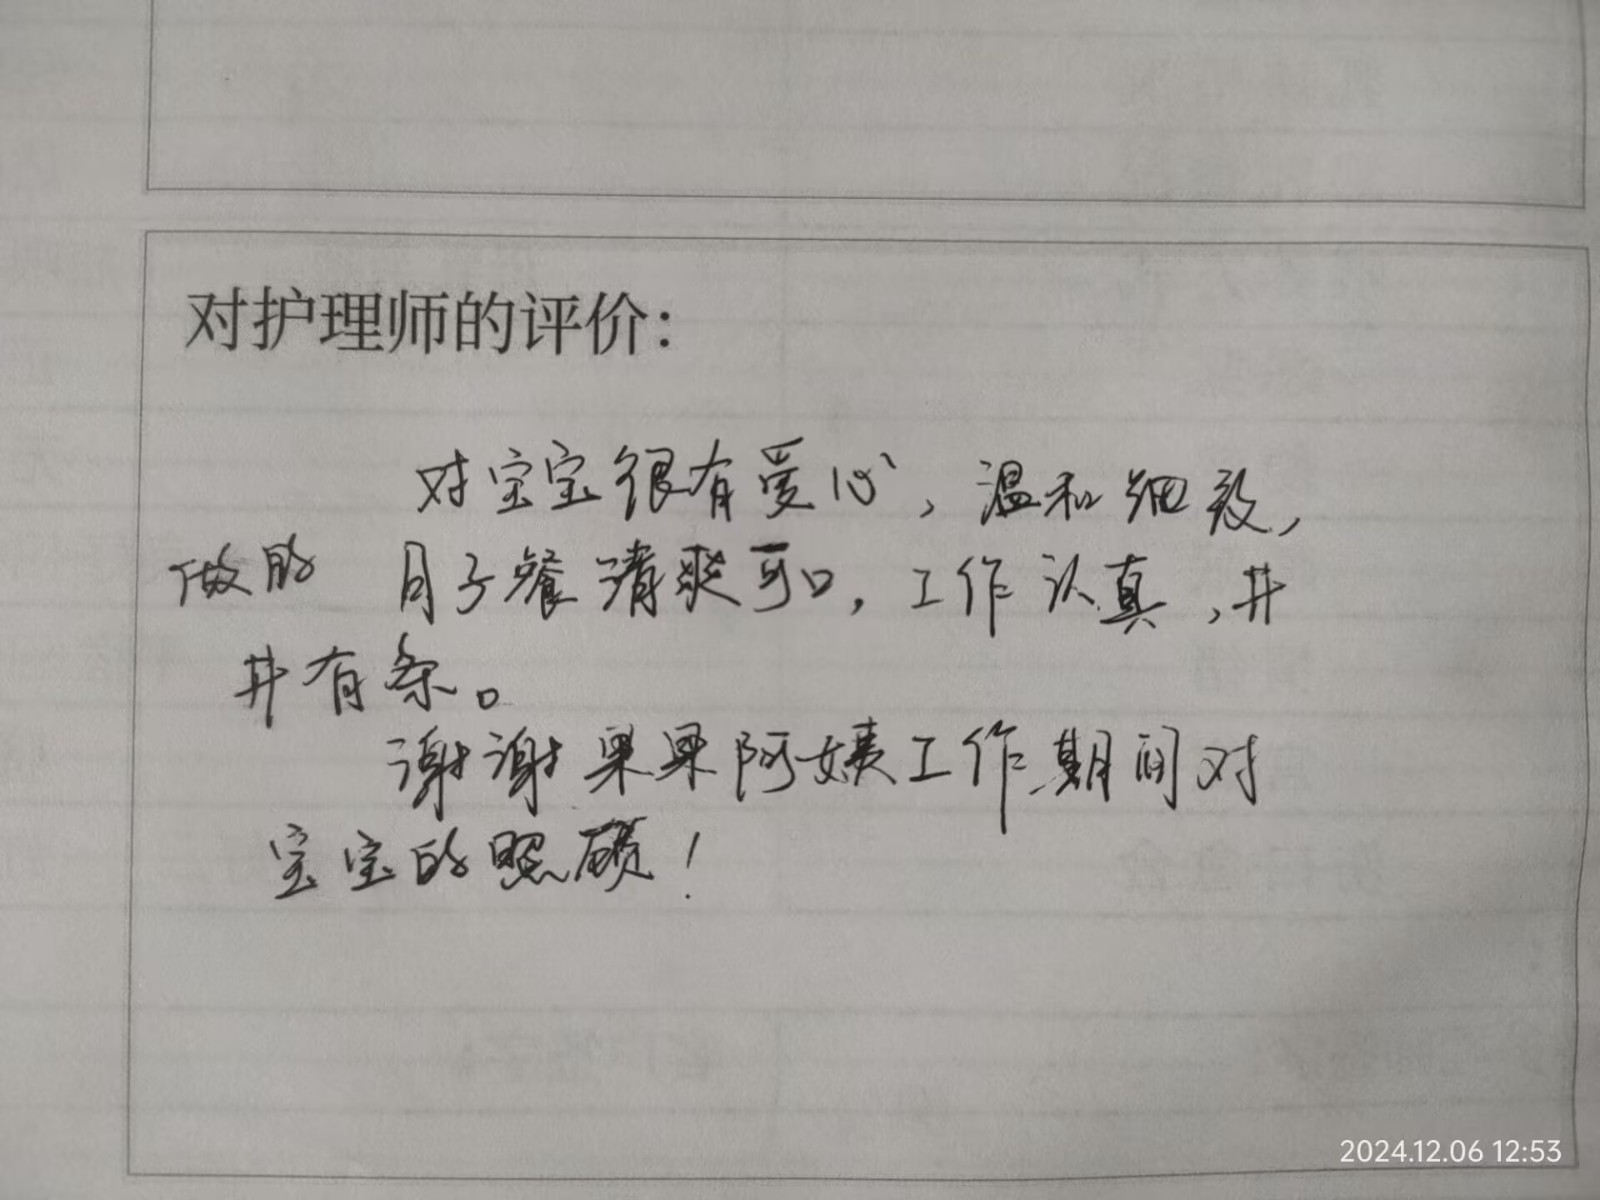 对护理师的评价：
对宝宝很有爱心，温和细致，
做的月子餐清爽可口，工作认真，井
井有条。
谢谢果果阿姨工作期间对
宝宝的照顾！
2024.12.06 12:53